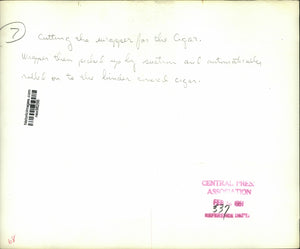 7
Cutting the wrapper for the Cigar.
Wrapper then picked up by suction and automatically
rolled on to the binder cigar.
CENTRAL PRESS
ASSOCIATION
FEB 1951
337
68